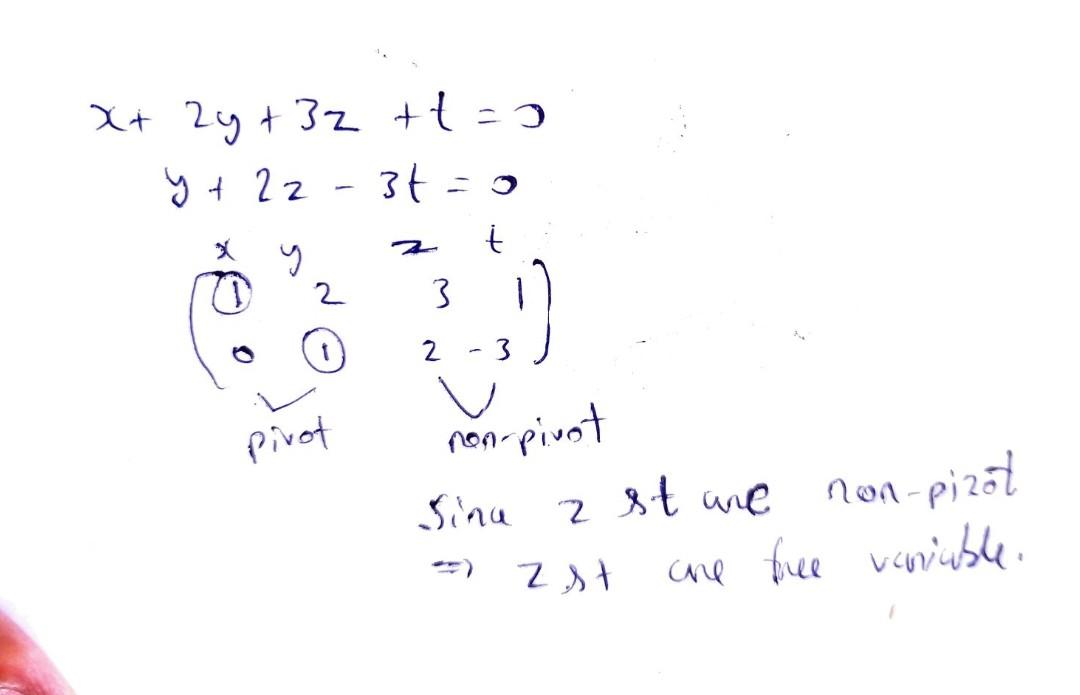 x + 2y + 3z + t = 0
y + 2z - 3t = 0
x y z t
1 2 3 1
0 1 2 -3
pivot non-pivot
Since z & t are non-pivot
=> z & t are free variable.